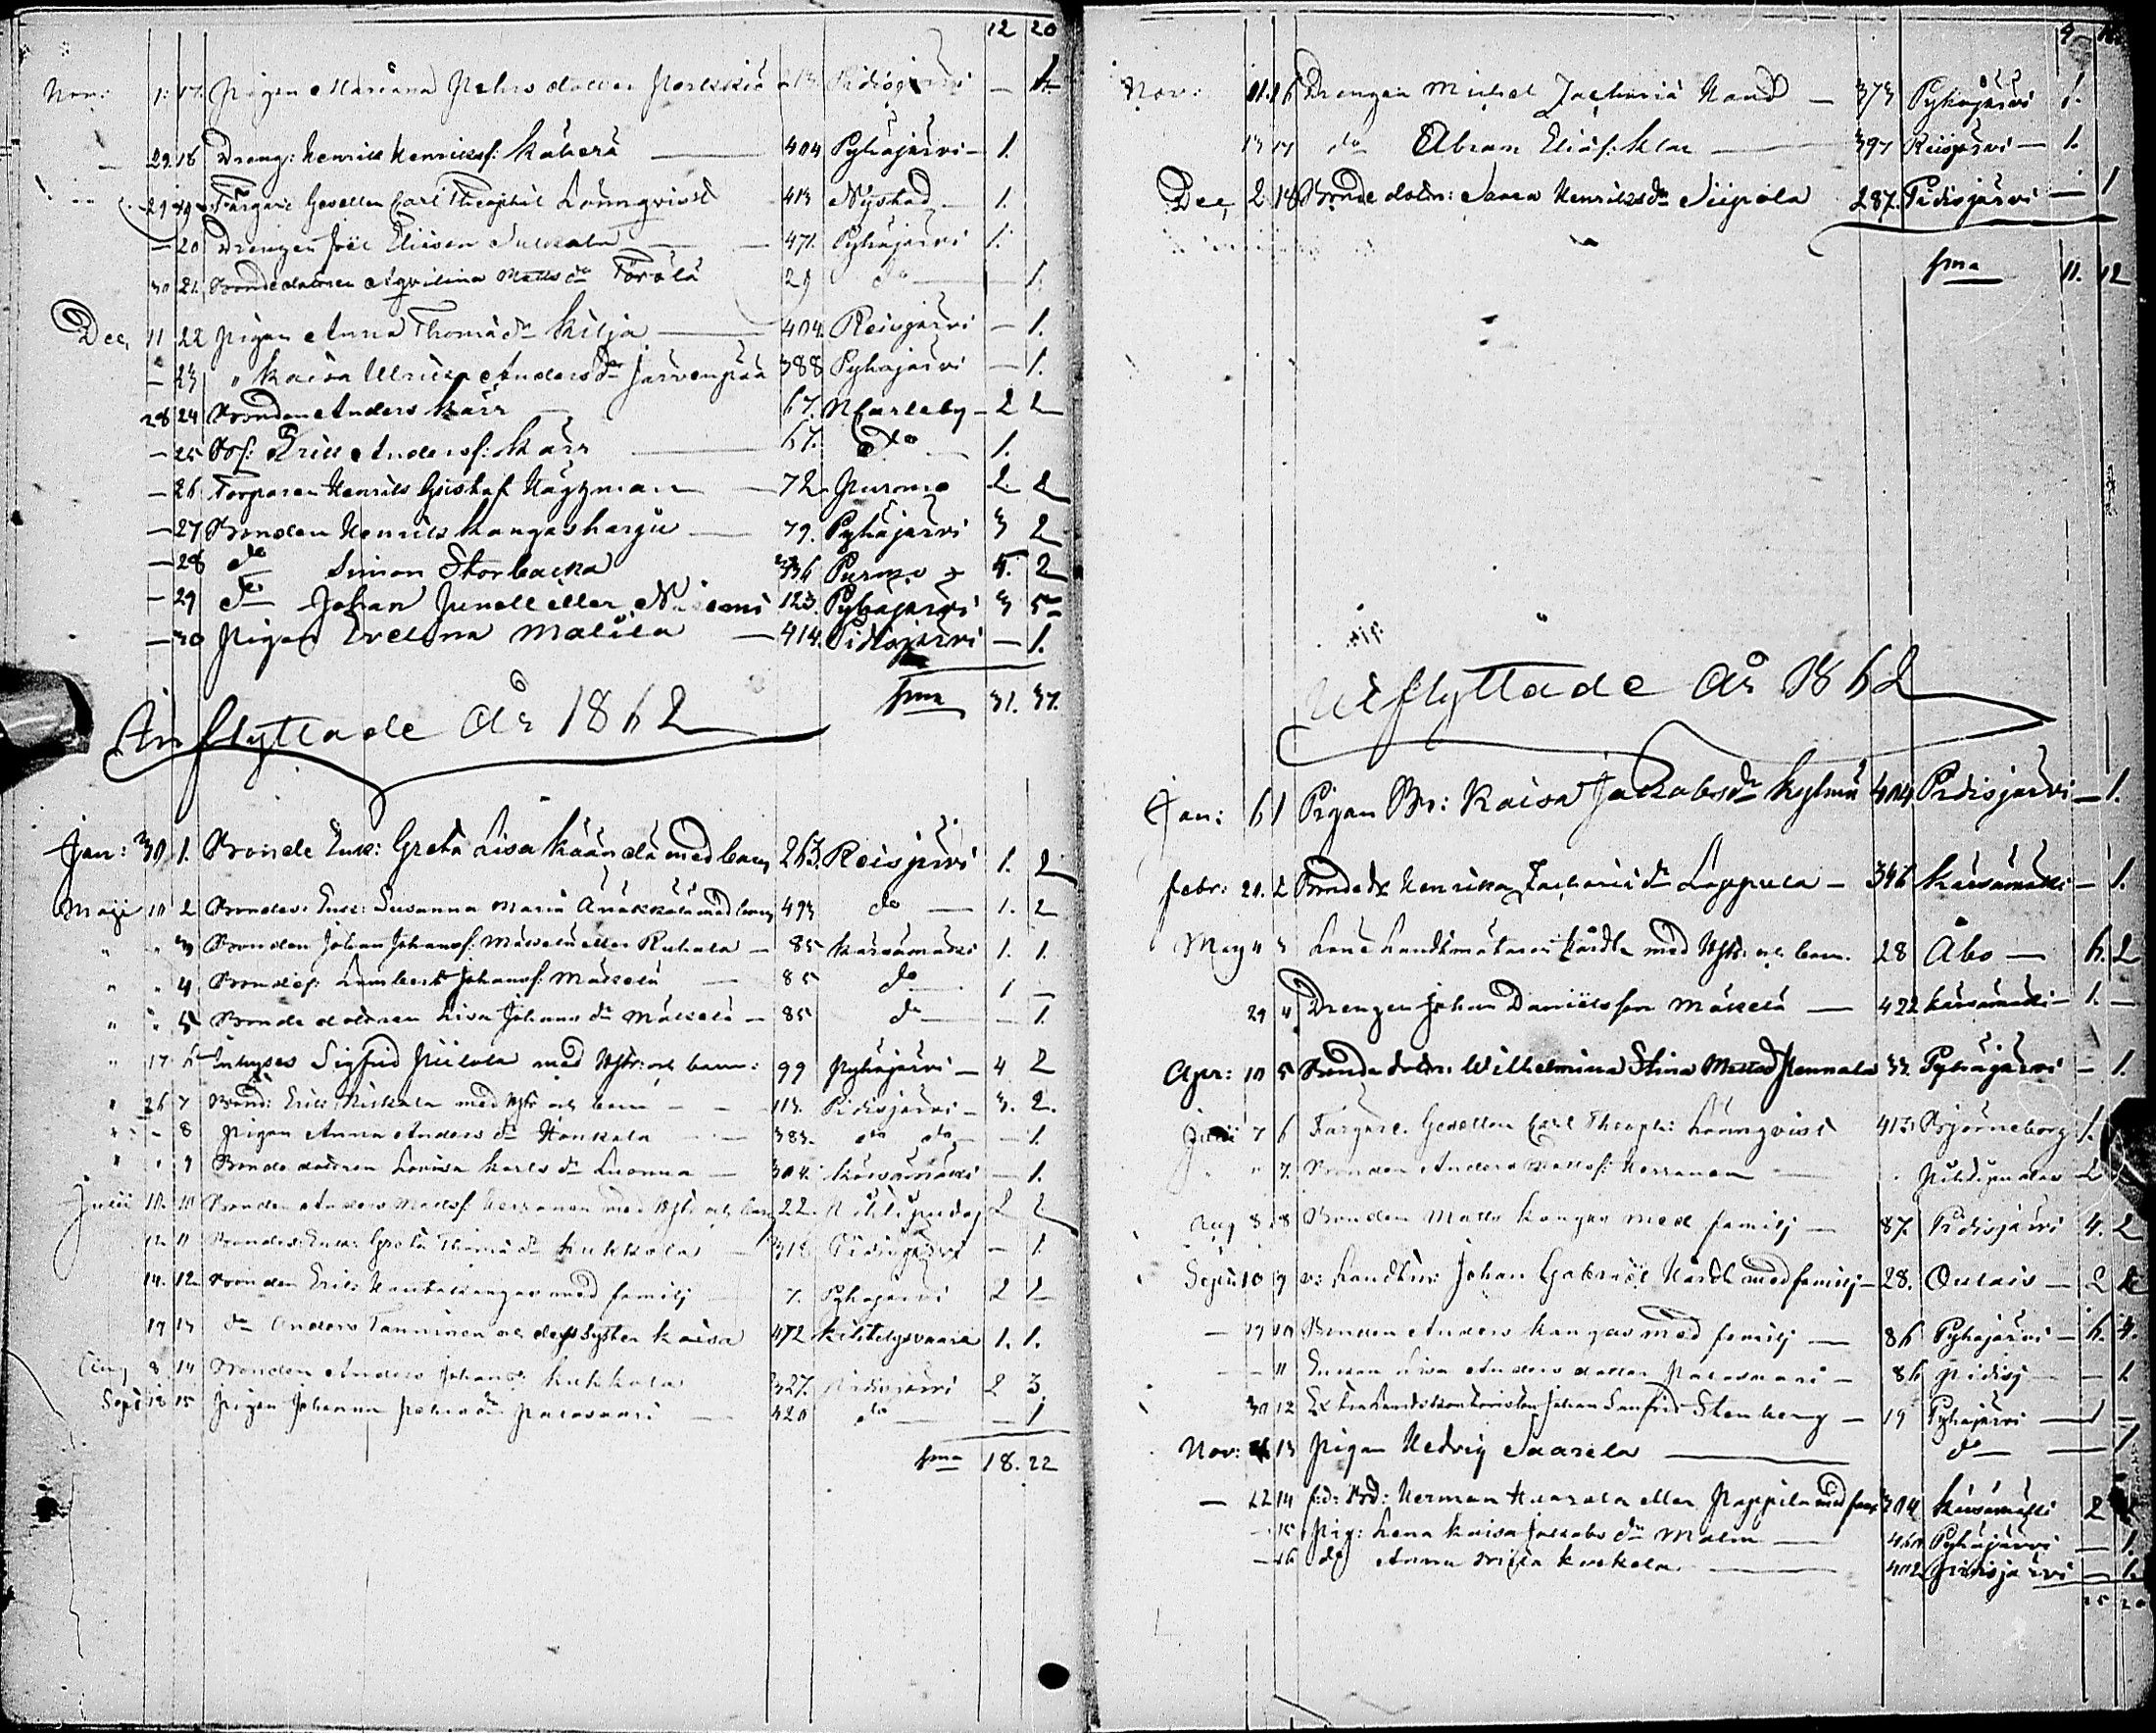 12 20
Nov: 1. 17. Pigan Mariana Petersdotter Pidisjärvi — 1.
— 29. 18 Dreng: Henrik Henriksf: Käherä — 404 Pyhäjärvi — 1.
29 19 Färgare Gesellen Carl Theophil Lönnqvist 413 Nystad — 1.
— 20 Drengen Joël Eliisson — 471. Pyhäjärvi 1.
30 21. Bondedottren Aqvilina Matts dr Törölä 29 do — 1.
Dec, 11 22 Pigan Anna Thomä dr Kilja — 404. Reisjärvi — 1.
— 23 " Kaisa Ulrika Anders dr Järvenpää 388 Pyhäjärvi — 1.
28 24 Bonden Anders Kärr 67. NCarleby — 2 2
— 25 Bf: Erik Andersf: Kärr — 67. do — 1.
— 26 Torparen Henrik Gustaf Häggman — 72 Purmo 2 2
— 27 Bonden Henrik Kangasharju — 79. Pyhäjärvi 3 2
— 28 do Simon Storbacka 336 Purmo 4. 2
— 29 do Johan Junell eller Niemi 123. Pyhäjärvi 3 5
— 30 Pigan Evelina Malila — 414. Pidisjärvi — 1.
Sma 31. 37.
Inflyttade År 1862
Jan: 30 1. Bonde Enk: Greta Lisa Kääntä med barn 263. Reisjärvi 1. 2
Maji 10 2 Bondes Enk: Susanna Maria Anäkkälä med barn 493 do — 1. 2
" " 3 Bonden Johan Johansf: Mäkelä eller Ruhala — 85 Kärsämäki 1. 1.
" " 4 Bondef: Lambert Johansf: Mäkelä — 85 do 1 —
" " 5 Bonde dottren Lisa Johans dr Mäkelä — 85 do — 1.
" 17 6 Inhyses Sigfrid Piilola med Hstr: och barn: 99 Pyhäjärvi — 4 2
" 26 7 Bond: Erik Niskala med Hstr och barn — 113. Pidisjärvi — 3. 2.
" — 8 Pigan Anna Anders dr Haukala — 383. do do — 1.
" " 9 Bonde dottren Lovisa Karls dr Luoma — 304. Kärsämäki — 1.
Julii 10. 10 Bonden Anders Mattsf: Herranen med Hstr och barn 22. Pihtipudas 2 2
12 11 Bondes Enk: Greta Thomä dr Kukkola — 314. Pidisjärvi — 1.
14. 12 Bonden Erik Hautakangas med familj 7. Pyhäjärvi 2 1
19 13 do Anders Tanninen och dess Syster Kaisa 472 Kihtelysvaara 1. 1.
Aug 8 14 Bonden Anders Johansf: Kukkola 327. Pidisjärvi 2 3.
Sept 18 15 Pigan Johanna Petersdr Palosaari — 420 do — 1
Sma 18. 22
9
Nov: 11. 16 Drengen Michel Zacharia — 373 Pyhäjärvi 1.
13 17 do Abram Eliäf: — 397 Reisjärvi — 1.
Dec, 2 18 Bonde dottr: Sanna Henriks dr Siipola 287. Pidisjärvi — 1
Sma 11. 12
Utflyttade År 1862
Jan: 6 1 Pigan Br: Kaisa Jakobs dr Kylmä 404. Pidisjärvi — 1.
Febr: 21. 2 Bonde dr Henrika Zacharia dr Lappula — 346 Kärsämäki — 1.
May 4 3 Landtmätaren Hårdh med Hstr: och barn. 28 Åbo — 6. 2
29 4 Drengen Johan Danielsson Mäkelä — 422 Kärsämäki — 1. —
Apr: 10 5 Bonde dottr: Wilhelmina Stina Mattsd Pennala 33. Pyhäjärvi — 1.
Junii 7 6 Färgare Gesellen Carl Theoph: Lönnqvist 413. Björneborg 1.
" " 7. Bonden Anders Mattsf: Herranen — Pihtipudas 2
Aug 8 8 Bonden Matts Kangas med familj — 87. Pidisjärvi 4. 2
Sept: 10 9 v: Landtm: Johan Gabriel Hårdh med familj — 28. Oulais — 2
— 19 10 Bonden Anders Kangas med familj — 86 Pyhäjärvi — 6. 4.
— — 11 Enkan Lisa Anders dotter Palosaari — 86 Pidisj — 1
30 12 Extra Landtskontoristen Johan Sanfrid Stenberg — 19 Pyhäjärvi — 1 —
Nov: 13 Pigan Hedvig Saarela — do — 1
— 22 14 f:d: Bd: Herman Haarala eller Pappila med fam 304 Kärsämäki 2
— 15 Pig: Lena Kaisa Jakobs dr Malm — 460 Pyhäjärvi — 1.
— 16 do Anna Brita Koskela — 402 Pidisjärvi — 1.
25 20